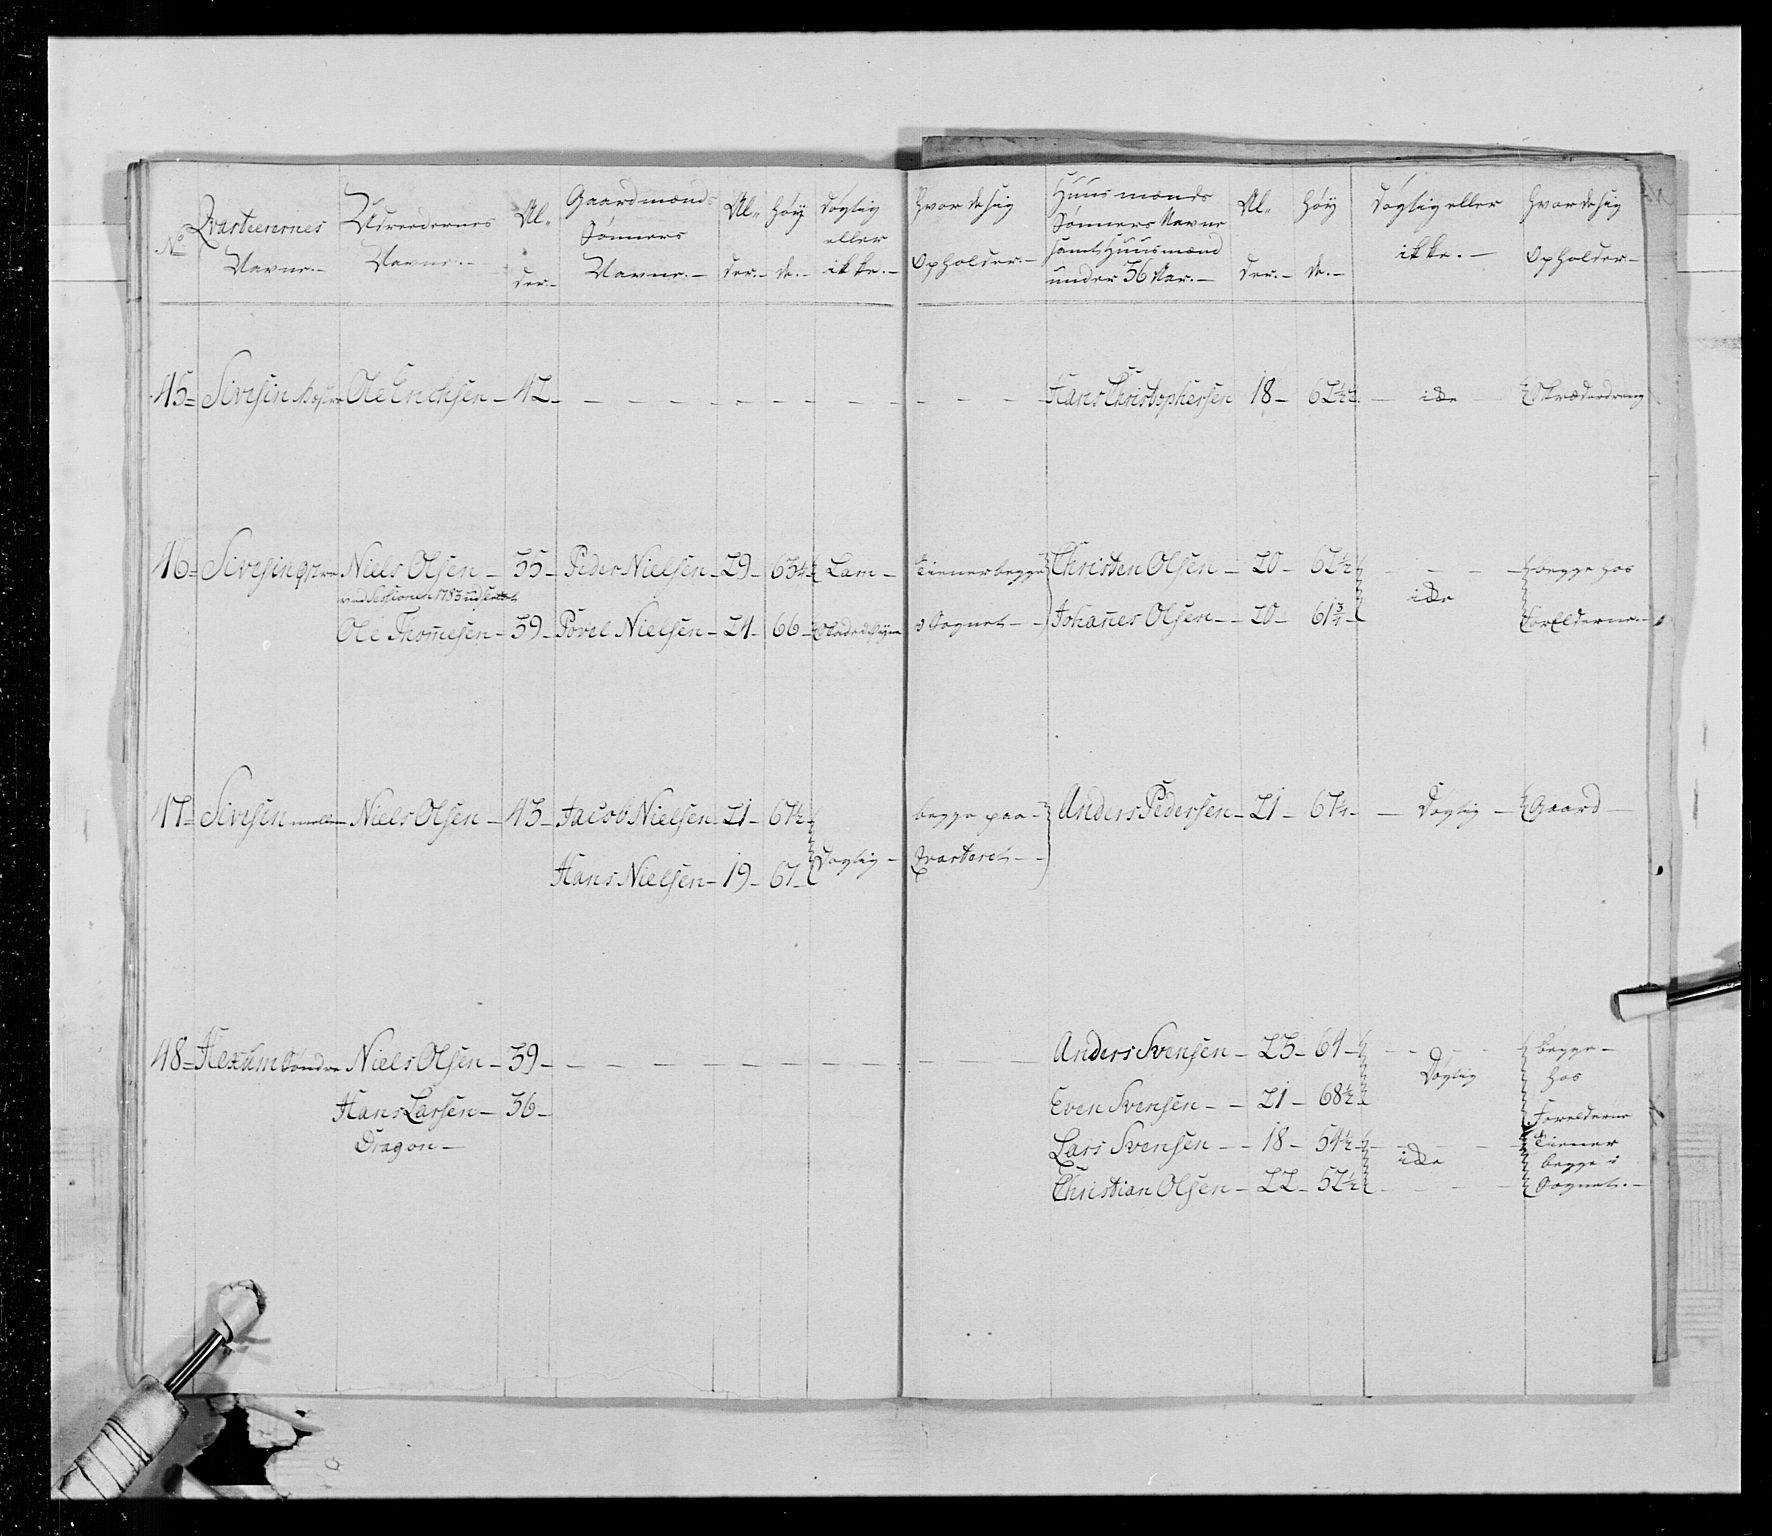 No
Qvarteerernes
Navne.-
Udreedernes
Navne.-
Al-
der.-
Gaardmænds
Sønners
Navne.-
Al-
der.-
Høy
de.-
Dygtig
eller
ikke.-
Hvor de sig
Opholder.-
Huusmænds
Sønners Navne
samt Huusmænd
under 36 Aar.-
Al-
der.-
Høy
de.-
Dygtig eller
ikke.-
Hvor de sig
Opholder-
45= Sivesin Ole Erichsen- 42- Hans Christophersen 18- 62½ - ikke - Skræderdreng
46= Sivesin østre Niels Olsen- 35- Peder Nielsen- 29- 63¼ Lam- Tiener begge Christen Olsen- 20- 62½ - - - begge hos
ved Sessionen 1783 udsat
ikke
Ole Thomesen- 39- Povel Nielsen- 24- 66- i Sognet- Johanes Olsen- 20- 61¾ Forelderne.-
47= Sivesin Niels Olsen- 43- Jacob Nielsen- 21- 67½ begge paa- Anders Pedersen- 21- 67¼- - Dygtig - Gaard-
Hans Nielsen- 19- 67- Dygtig- Qvarteret-
48= Hexum Søndre Niels Olsen- 39- Anders Svensen- 23- 64- begge-
Dygtig hos
Hans Larsen- 36- Even Svensen- 21- 68½ Forelderne
Dragon- Lars Svensen- 18- 54½ Tiener
ikke begge i
Christian Olsen- 22- 57½ Sognet.-